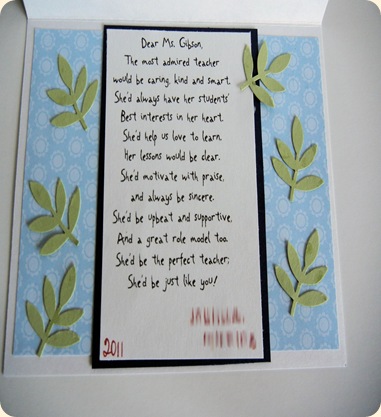 Dear Ms. Gibson,
The most admired teacher
would be caring, kind and smart.
She'd always have her students'
Best interests in her heart.
She'd help us love to learn,
Her lessons would be clear.
She'd motivate with praise,
and always be sincere.
She'd be upbeat and supportive,
And a great role model too.
She'd be the perfect teacher;
She'd be just like you!
2011